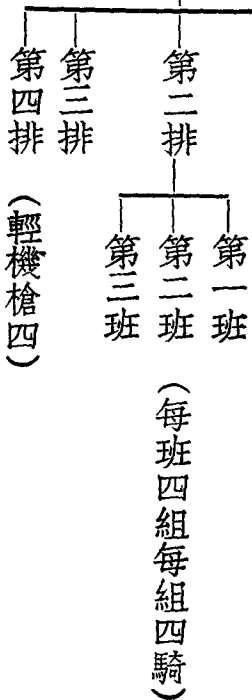 第二排
第一班
第二班
第三班
（每班四組每組四騎）
第三排
第四排
（輕機槍四）